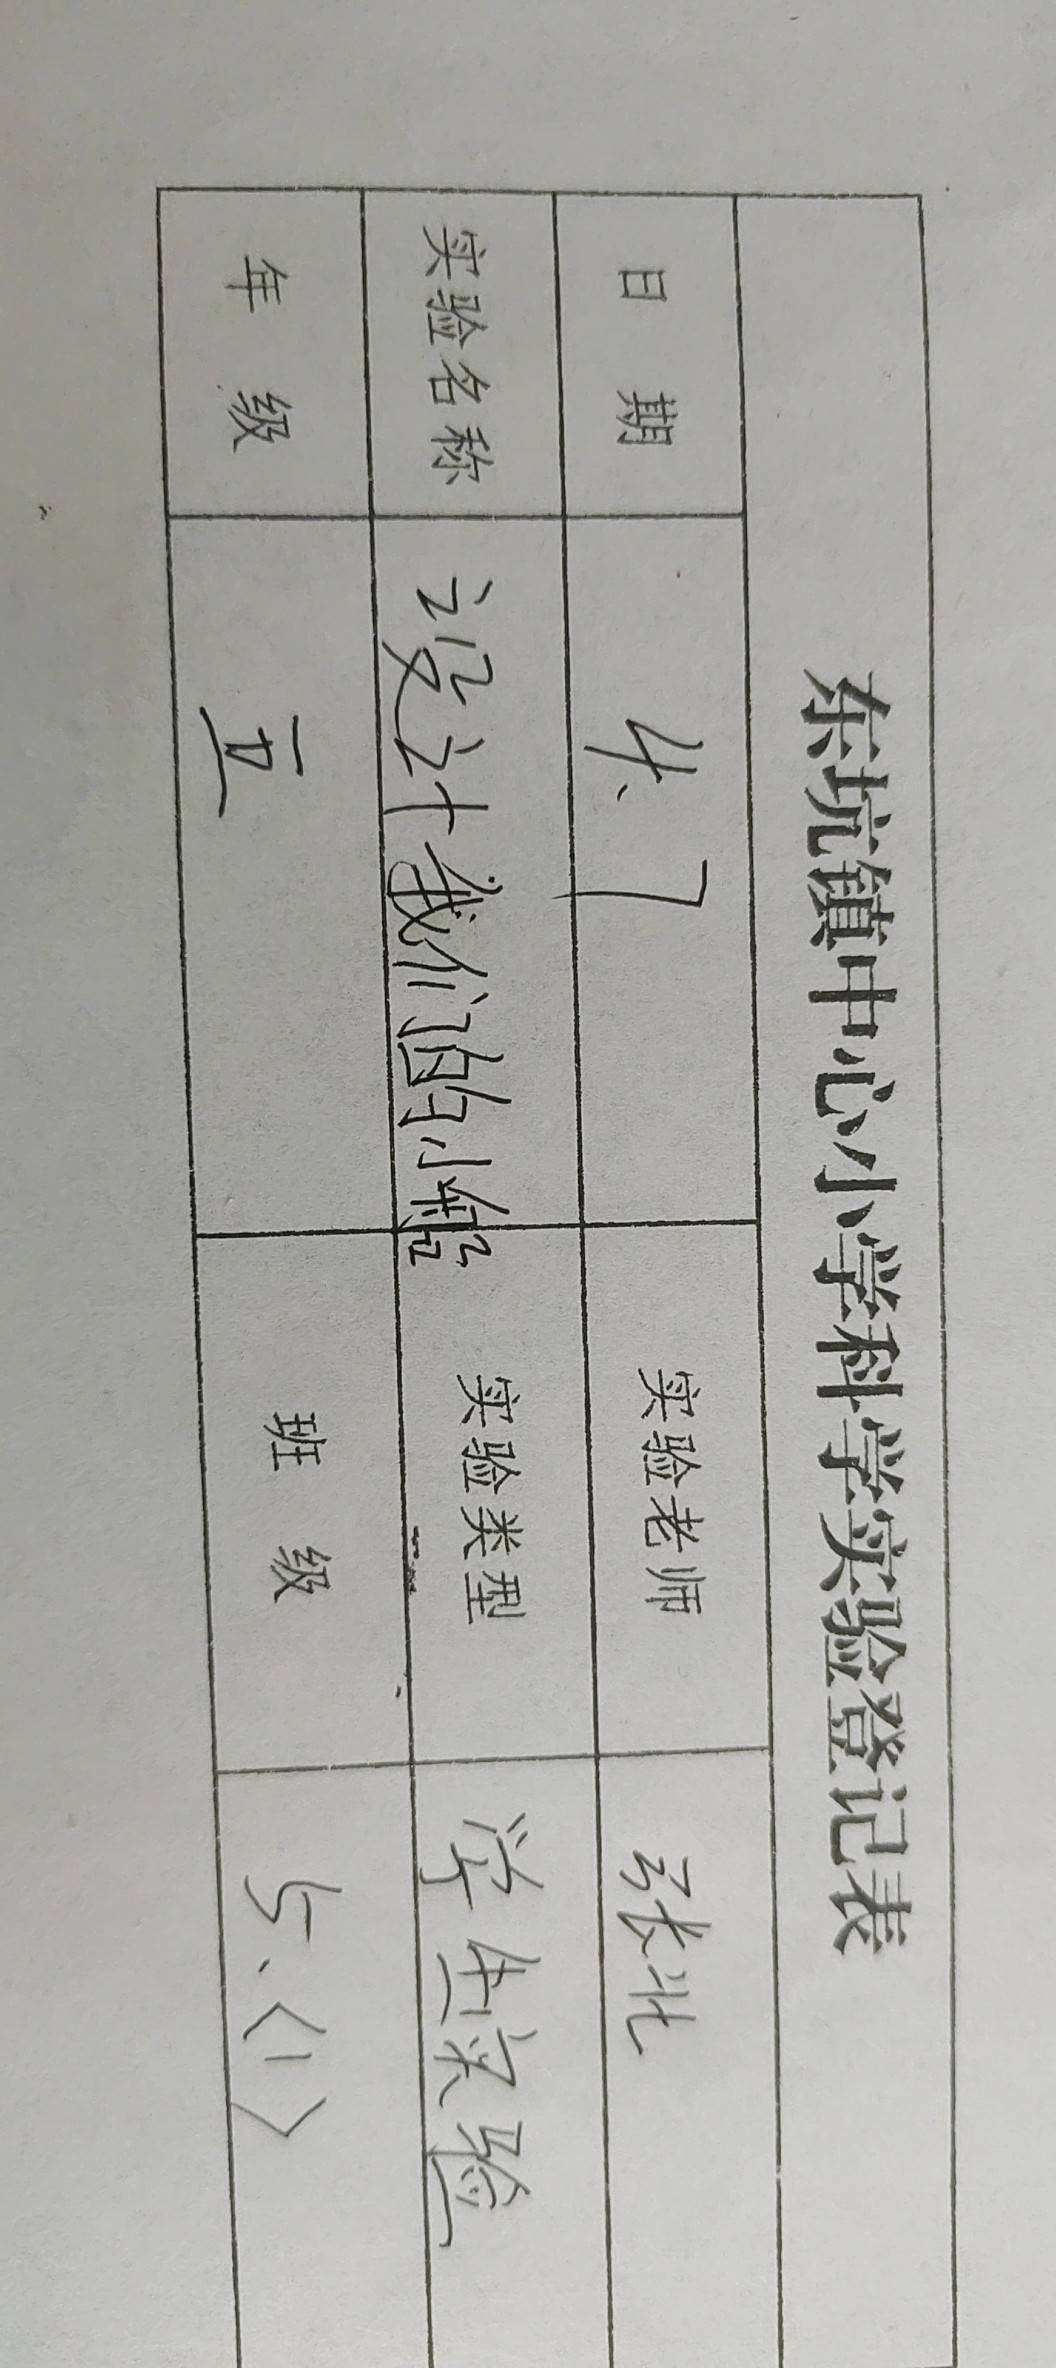 东坑镇中心小学科学实验登记表
日 期 4.7 实验老师 张北
实验名称 设计我们的小船 实验类型 学生实验
年 级 五 班 级 5.〈1〉